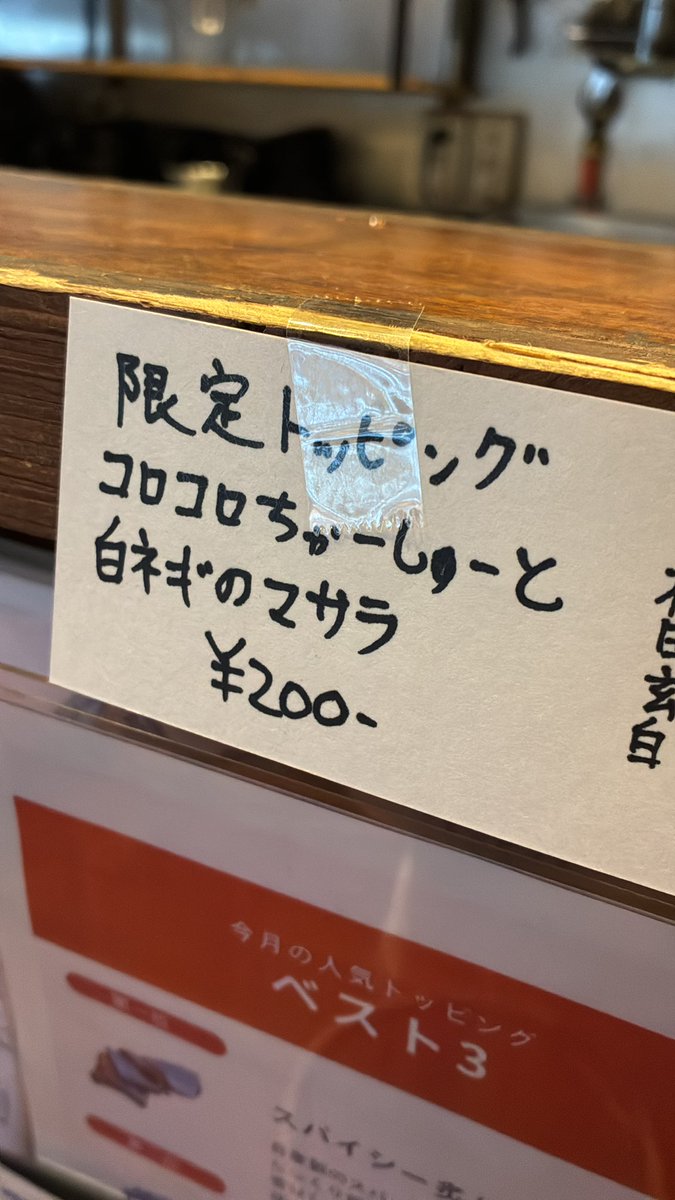 限定トッピング
コロコロちゃーしゅーと
白ネギのマサラ
¥200-
今月の人気トッピング
ベスト3
スパイシー